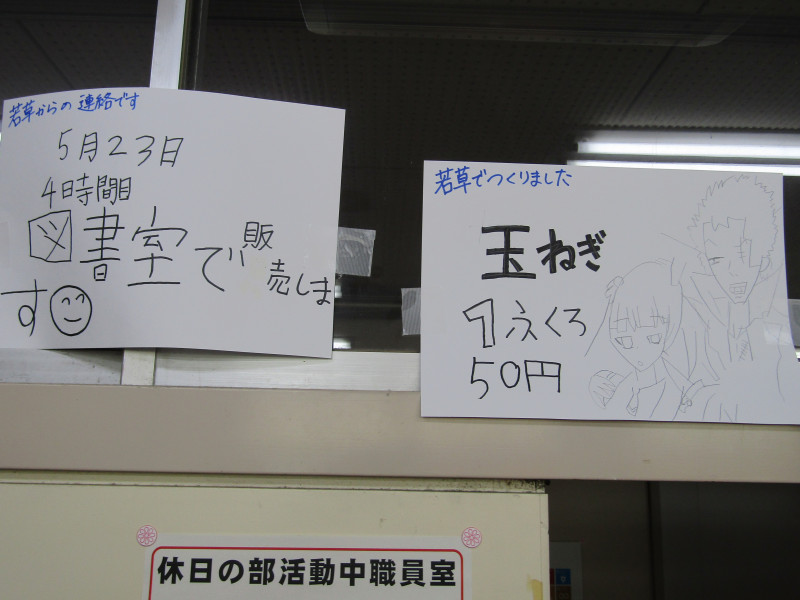 若草からの連絡です
5月23日
4日時間目
図書室で販売しま
す
若草でつくりました
玉ねぎ
1ふくろ
50円
休日の部活動中職員室